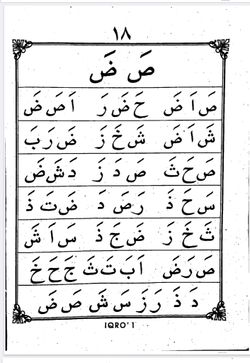 ١٨
صَ ضَ
صَ اَ ضَ حَ ضَ رَ اَ صَ ضَ
شَ اَ ضَ شَ خَ زَ ضَ رَ بَ
صَ حَ ثَ صَ دَ زَ دَ شَ ضَ
سَ حَ ذَ رَ صَ دَ ضَ تَ ذَ
ثَ خَ زَ ضَ جَ ذَ سَ اَ شَ
صَ رَ ضَ اَ بَ تَ ثَ جَ حَ خَ
دَ ذَ رَ زَ سَ شَ صَ ضَ
IQRO' 1